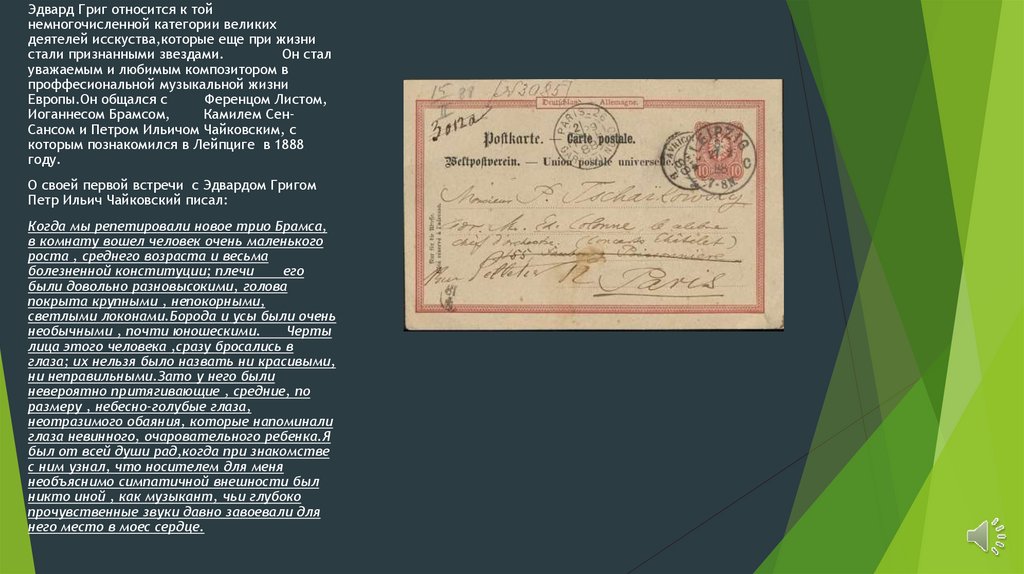 Эдвард Григ относится к той
немногочисленной категории великих
деятелей исскуства,которые еще при жизни
стали признанными звездами. Он стал
уважаемым и любимым композитором в
проффесиональной музыкальной жизни
Европы.Он общался с Ференцом Листом,
Иоганнесом Брамсом, Камилем Сен-
Сансом и Петром Ильичом Чайковским, с
которым познакомился в Лейпциге в 1888
году.
О своей первой встречи с Эдвардом Григом
Петр Ильич Чайковский писал:
Когда мы репетировали новое трио Брамса,
в комнату вошел человек очень маленького
роста , среднего возраста и весьма
болезненной конституции; плечи его
были довольно разновысокими, голова
покрыта крупными , непокорными,
светлыми локонами.Борода и усы были очень
необычными , почти юношескими. Черты
лица этого человека ,сразу бросались в
глаза; их нельзя было назвать ни красивыми,
ни неправильными.Зато у него были
невероятно притягивающие , средние, по
размеру , небесно-голубые глаза,
неотразимого обаяния, которые напоминали
глаза невинного, очаровательного ребенка.Я
был от всей души рад,когда при знакомстве
с ним узнал, что носителем для меня
необъяснимо симпатичной внешности был
никто иной , как музыкант, чьи глубоко
прочувственные звуки давно завоевали для
него место в моес сердце.
Deutschland. Allemagne.
PARIS
LEIPZIG
10 10
Postkarte. — Carte postale.
Weltpostverein. — Union postale universelle.
Monsieur P. Tschaikowsky
Ed. Colonne le célèbre
chef d'orchestre (Concerts Châtelet)
155 Faubourg Poissonnière
Rue Pelletier
Paris